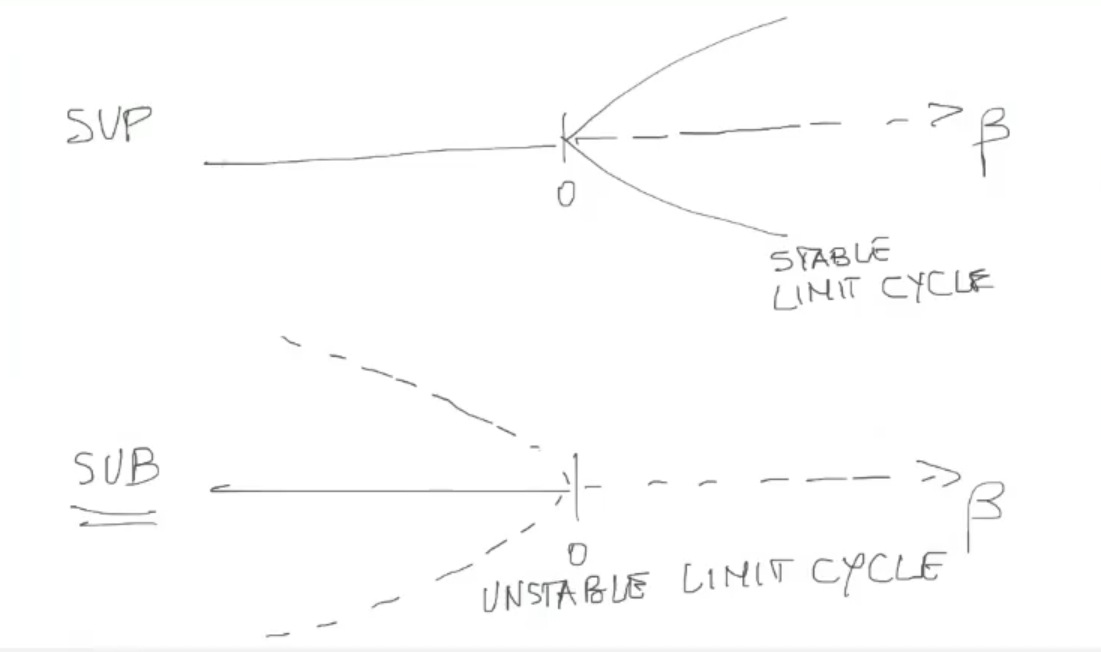 SUP
β
0
STABLE
LIMIT CYCLE
SUB
β
0
UNSTABLE LIMIT CYCLE